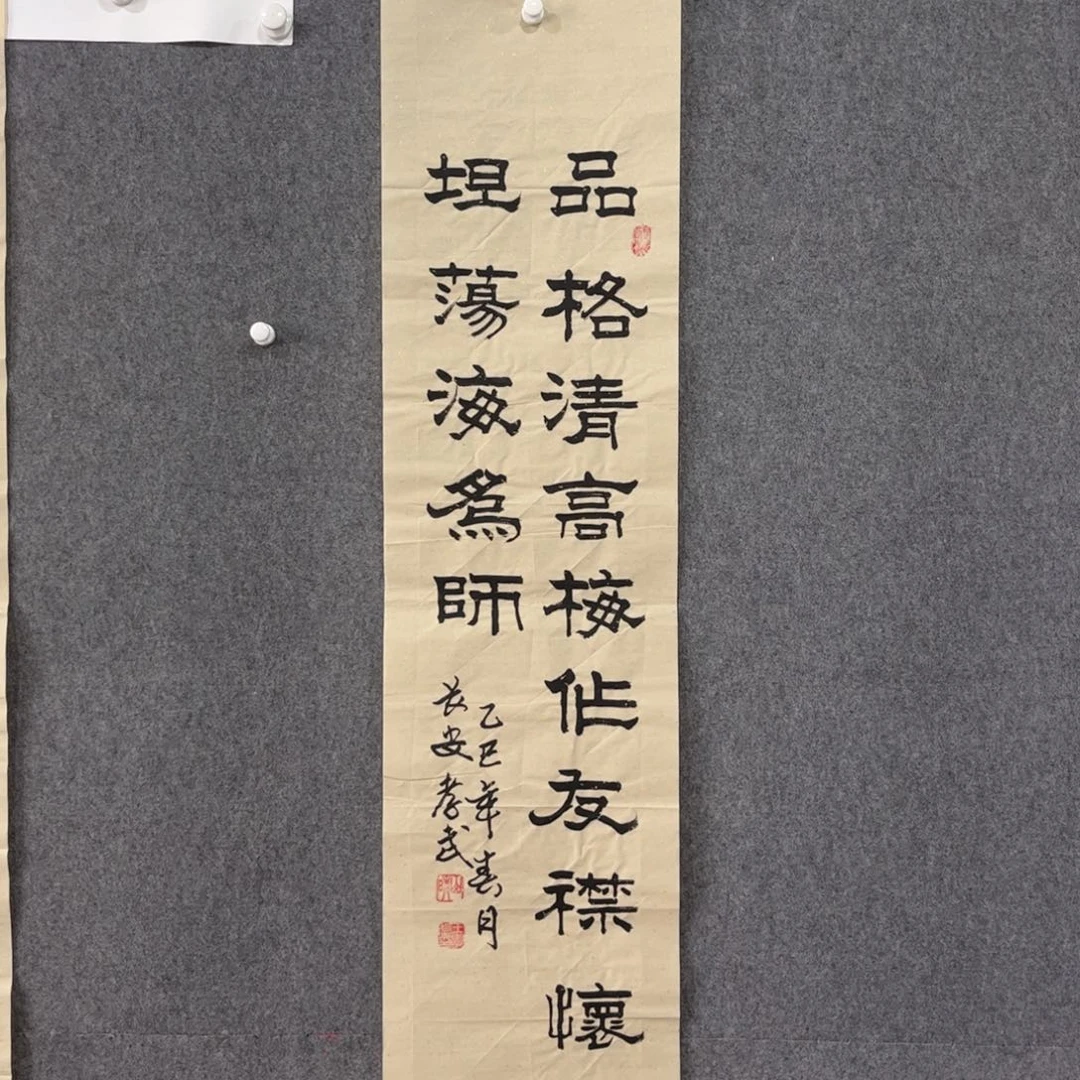 品格清高梅作友襟懷
坦蕩海為師
乙巳年春月
長安孝武